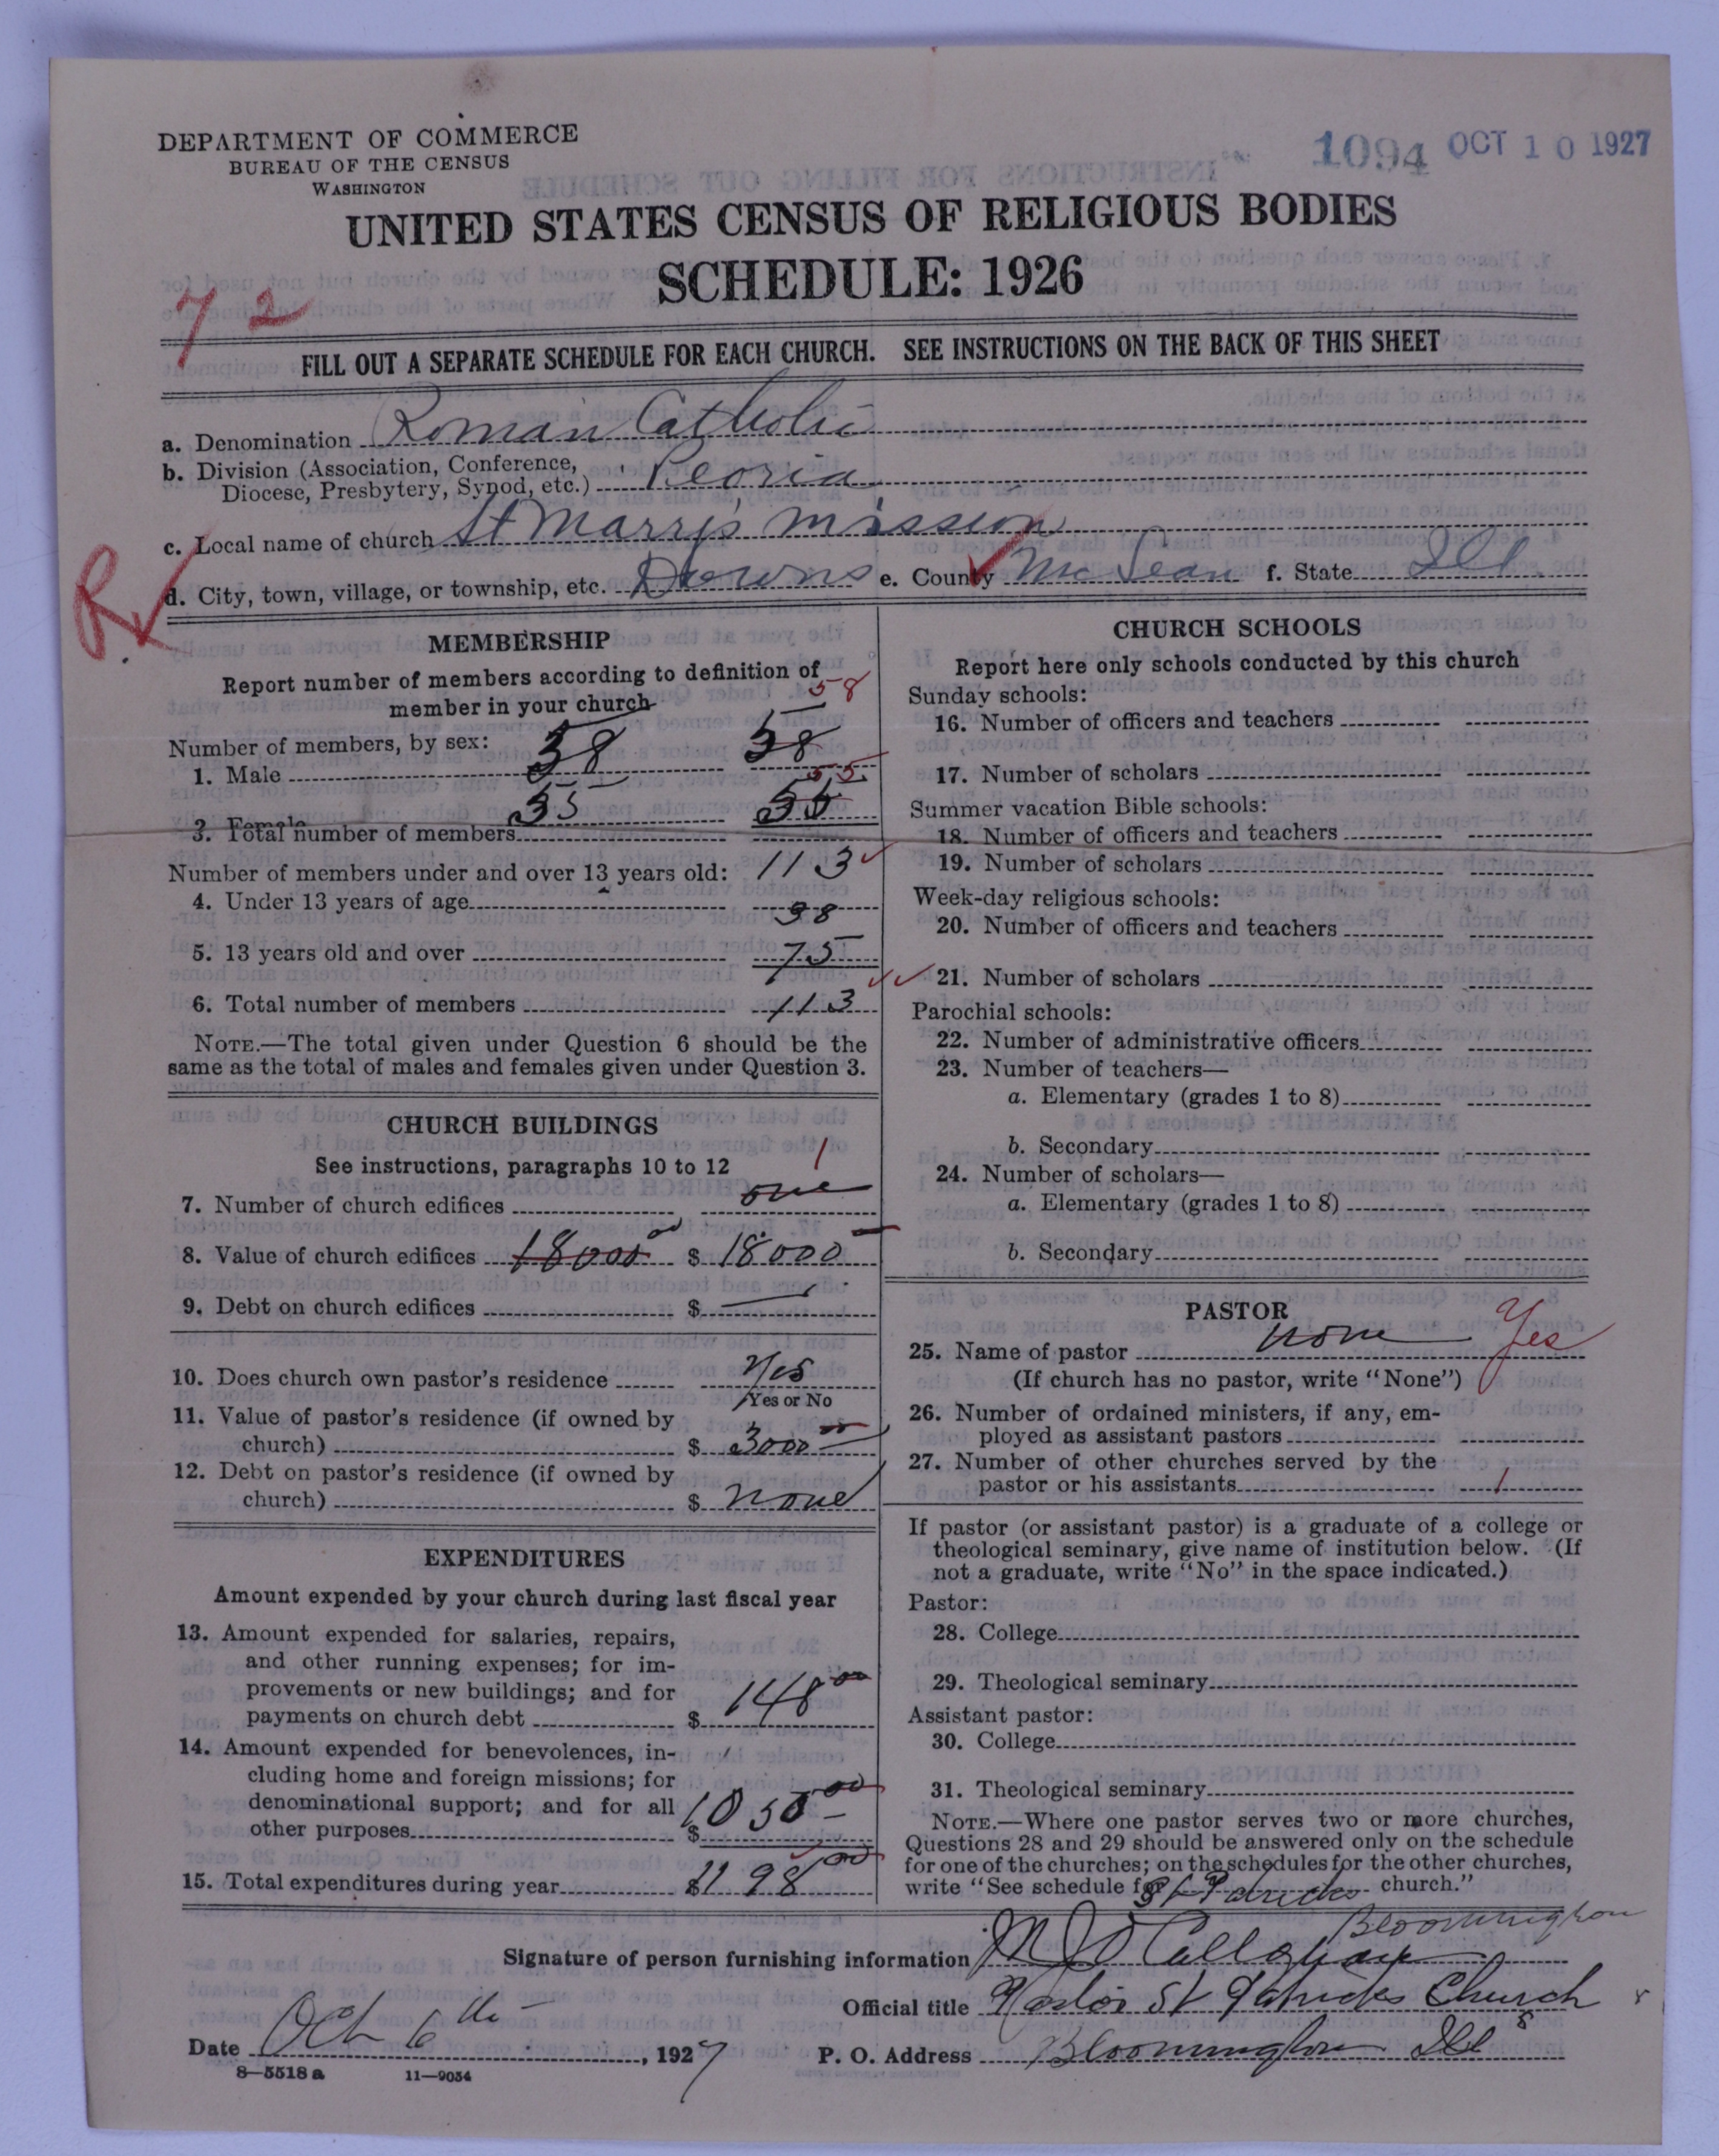 DEPARTMENT OF COMMERCE
BUREAU OF THE CENSUS
WASHINGTON
1094 OCT 10 1927
UNITED STATES CENSUS OF RELIGIOUS BODIES
SCHEDULE: 1926
72
FILL OUT A SEPARATE SCHEDULE FOR EACH CHURCH. SEE INSTRUCTIONS ON THE BACK OF THIS SHEET
a. Denomination Roman Catholic
b. Division (Association, Conference, Diocese, Presbytery, Synod, etc.) Peoria
c. Local name of church St Marry's mission
R
d. City, town, village, or township, etc. Downs e. County Mc Lean f. State Ill.
MEMBERSHIP
Report number of members according to definition of
member in your church
58
Number of members, by sex:
1. Male 58 58
55
2. Female 55 55
3. Total number of members 113
Number of members under and over 13 years old:
4. Under 13 years of age 38
5. 13 years old and over 75
6. Total number of members 113
NOTE.—The total given under Question 6 should be the
same as the total of males and females given under Question 3.
CHURCH BUILDINGS
See instructions, paragraphs 10 to 12
1
7. Number of church edifices one
8. Value of church edifices 18000 00 $ 18000
9. Debt on church edifices $ —
10. Does church own pastor's residence Yes
Yes or No
11. Value of pastor's residence (if owned by
church) $ 3000 00
12. Debt on pastor's residence (if owned by
church) $ none
EXPENDITURES
Amount expended by your church during last fiscal year
13. Amount expended for salaries, repairs,
and other running expenses; for im-
provements or new buildings; and for
payments on church debt $ 148 00
14. Amount expended for benevolences, in-
cluding home and foreign missions; for
denominational support; and for all
other purposes $ 1050 00
15. Total expenditures during year $ 1198 00
CHURCH SCHOOLS
Report here only schools conducted by this church
Sunday schools:
16. Number of officers and teachers
17. Number of scholars
Summer vacation Bible schools:
18. Number of officers and teachers
19. Number of scholars
Week-day religious schools:
20. Number of officers and teachers
21. Number of scholars
Parochial schools:
22. Number of administrative officers
23. Number of teachers—
a. Elementary (grades 1 to 8)
b. Secondary
24. Number of scholars—
a. Elementary (grades 1 to 8)
b. Secondary
PASTOR
25. Name of pastor none Yes
(If church has no pastor, write "None")
26. Number of ordained ministers, if any, em-
ployed as assistant pastors
27. Number of other churches served by the
pastor or his assistants 1
If pastor (or assistant pastor) is a graduate of a college or
theological seminary, give name of institution below. (If
not a graduate, write "No" in the space indicated.)
Pastor:
28. College
29. Theological seminary
Assistant pastor:
30. College
31. Theological seminary
NOTE.—Where one pastor serves two or more churches,
Questions 28 and 29 should be answered only on the schedule
for one of the churches; on the schedules for the other churches,
write "See schedule for St Patricks church."
Bloomington
Signature of person furnishing information M J O Callaghan
Official title Pastor St Patricks Church
Date Oct 6th, 1927 P. O. Address Bloomington Ill
8—5518 a 11—9054